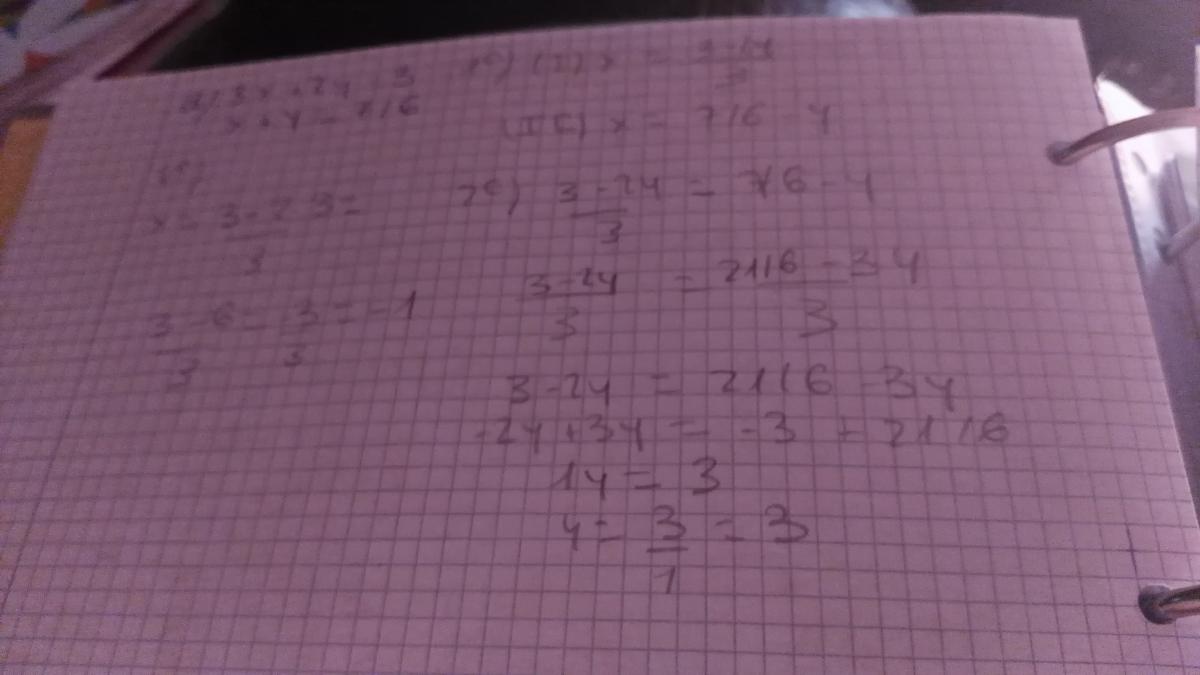 a) 3x + 2y = 3
x + y = 7/6
1º)
x = 3 - 2 3 =
3
3 - 6 = 3 = -1
3 3
1º) (I) x = 3 - 2y
3
(II) x = 7/6 - y
2º) 3 - 2y = 7/6 - y
3
3 - 2y = 21/6 - 3y
3 3
3 - 2y = 21/6 - 3y
-2y + 3y = -3 + 21/6
1y = 3
y = 3 = 3
1